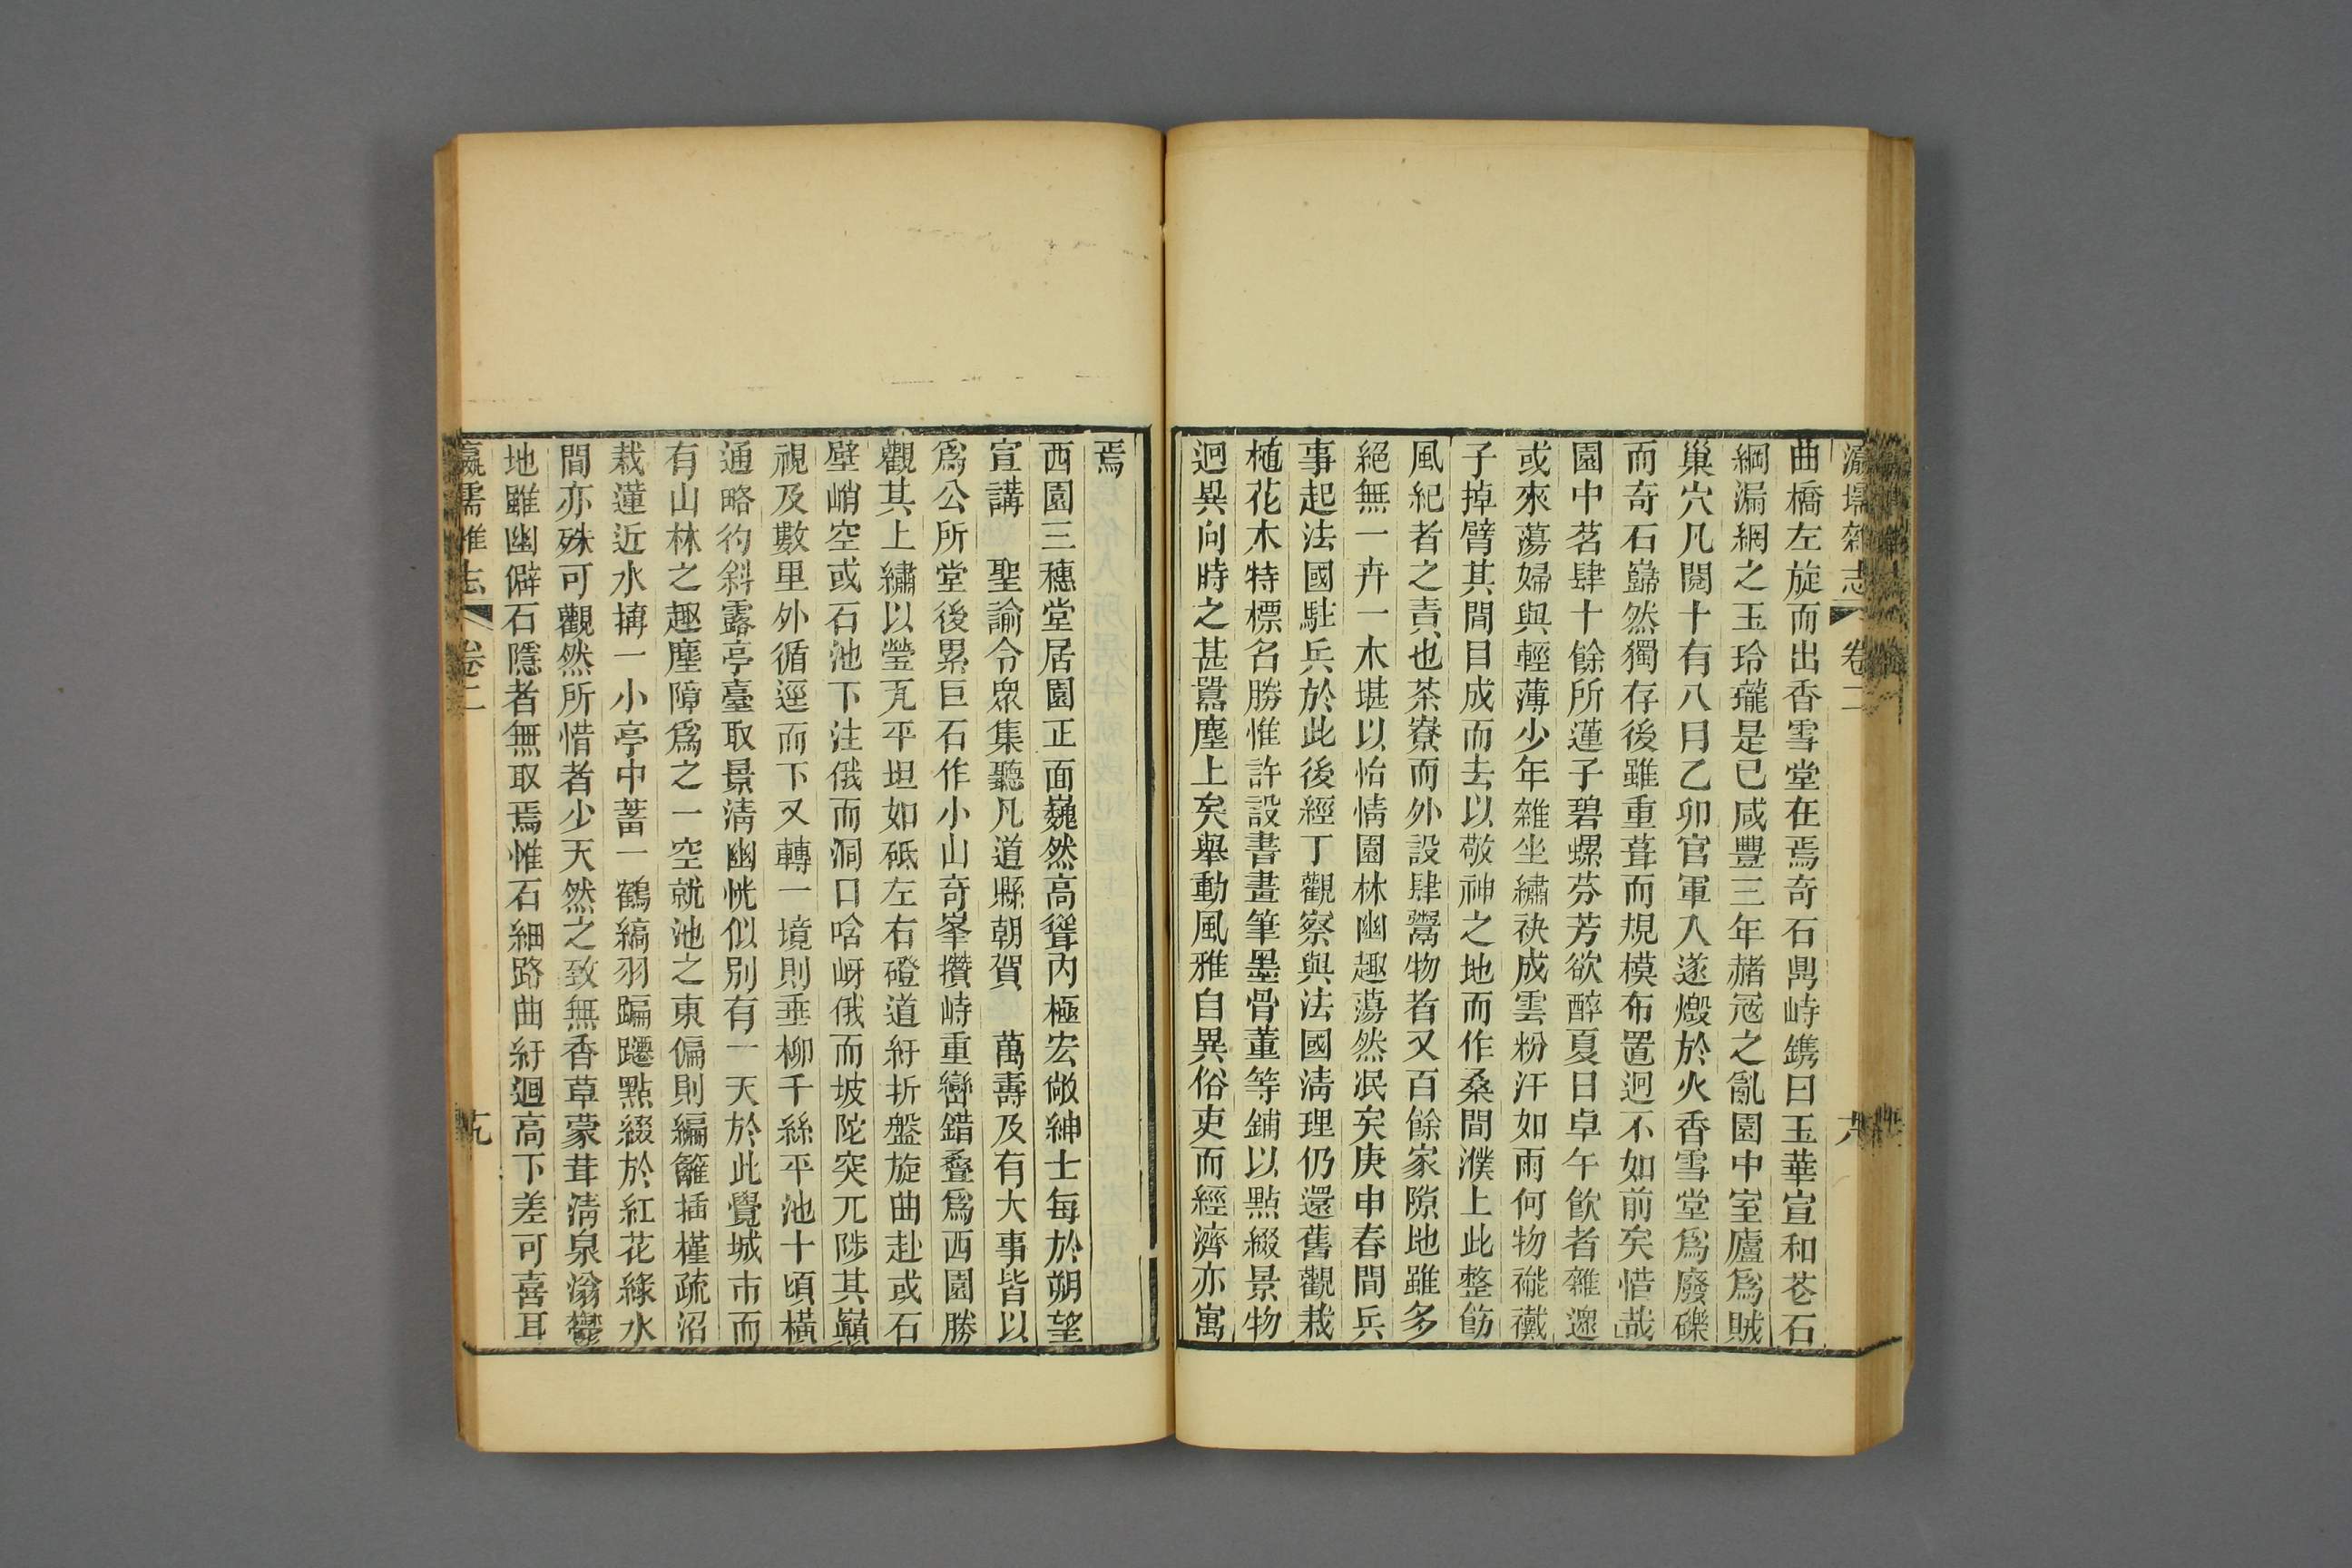 瀛壖雜志 卷二 六
曲橋左旋而出香雪堂在焉奇石鼎峙鐫曰玉華宣和茖石
綱漏網之玉玲瓏是已咸豐三年赭寇之亂園中室廬爲賊
巢穴凡閱十有八月乙卯官軍入遂燬於火香雪堂爲廢礫
而奇石巋然獨存後雖重葺而規模布置迥不如前矣惜哉
園中茗肆十餘所蓮子碧螺芬芳欲醉夏日卓午飲者雜遝
或來蕩婦與輕薄少年雜坐繡袂成雲粉汗如雨何物褦襶
子掉臂其間目成而去以敬神之地而作桑間濮上此整飭
風紀者之責也茶寮而外設肆鬻物者又百餘家隙地雖多
絕無一卉一木堪以怡情園林幽趣蕩然泯矣庚申春間兵
事起法國駐兵於此後經丁觀察與法國淸理仍還舊觀栽
植花木特標名勝惟許設書畫筆墨骨董等鋪以點綴景物
迥異向時之甚囂塵上矣舉動風雅自異俗吏而經濟亦寓
焉
西園三穗堂居園正面巍然高聳內極宏敞紳士每於朔望
宣講 聖諭令眾集聽凡道縣朝賀 萬壽及有大事皆以
爲公所堂後累巨石作小山奇峯攢峙重巒錯疊爲西園勝
觀其上繡以瑩瓦平坦如砥左右磴道紆折盤旋曲赴或石
壁峭空或石池下注俄而洞口唅岈俄而坡陀突兀陟其巔
視及數里外循逕而下又轉一境則垂柳千絲平池十頃橫
通略彴斜露亭臺取景淸幽恍似別有一天於此覺城市而
有山林之趣塵障爲之一空就池之東偏則編籬插槿疏沼
栽蓮近水搆一小亭中蓄一鶴縞羽蹁躚點綴於紅花綠水
間亦殊可觀然所惜者少天然之致無香草蒙茸淸泉滃鬱
地雖幽僻石隱者無取焉惟石細路曲紆迴高下差可喜耳
瀛壖雜志 卷二